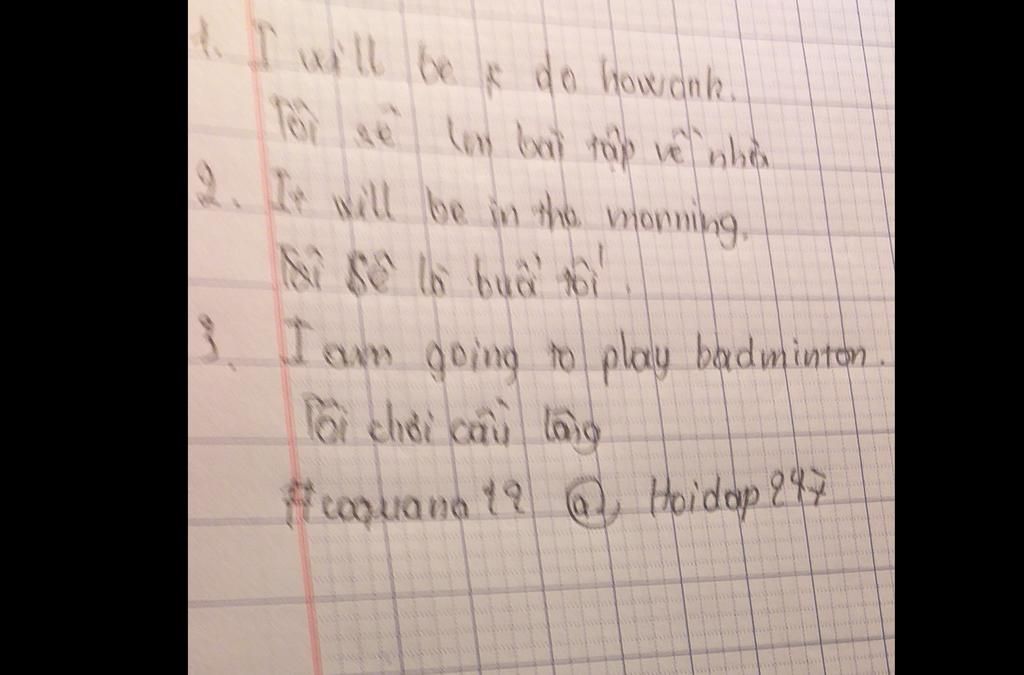 1. I will be do
Tôi sẽ bài tập về nhà
2. It will be in the morning.
Tôi sẽ là buổi tối.
3. I am going to play badminton.
Tôi chơi cầu lông
#coquang12 @ Hoidap247